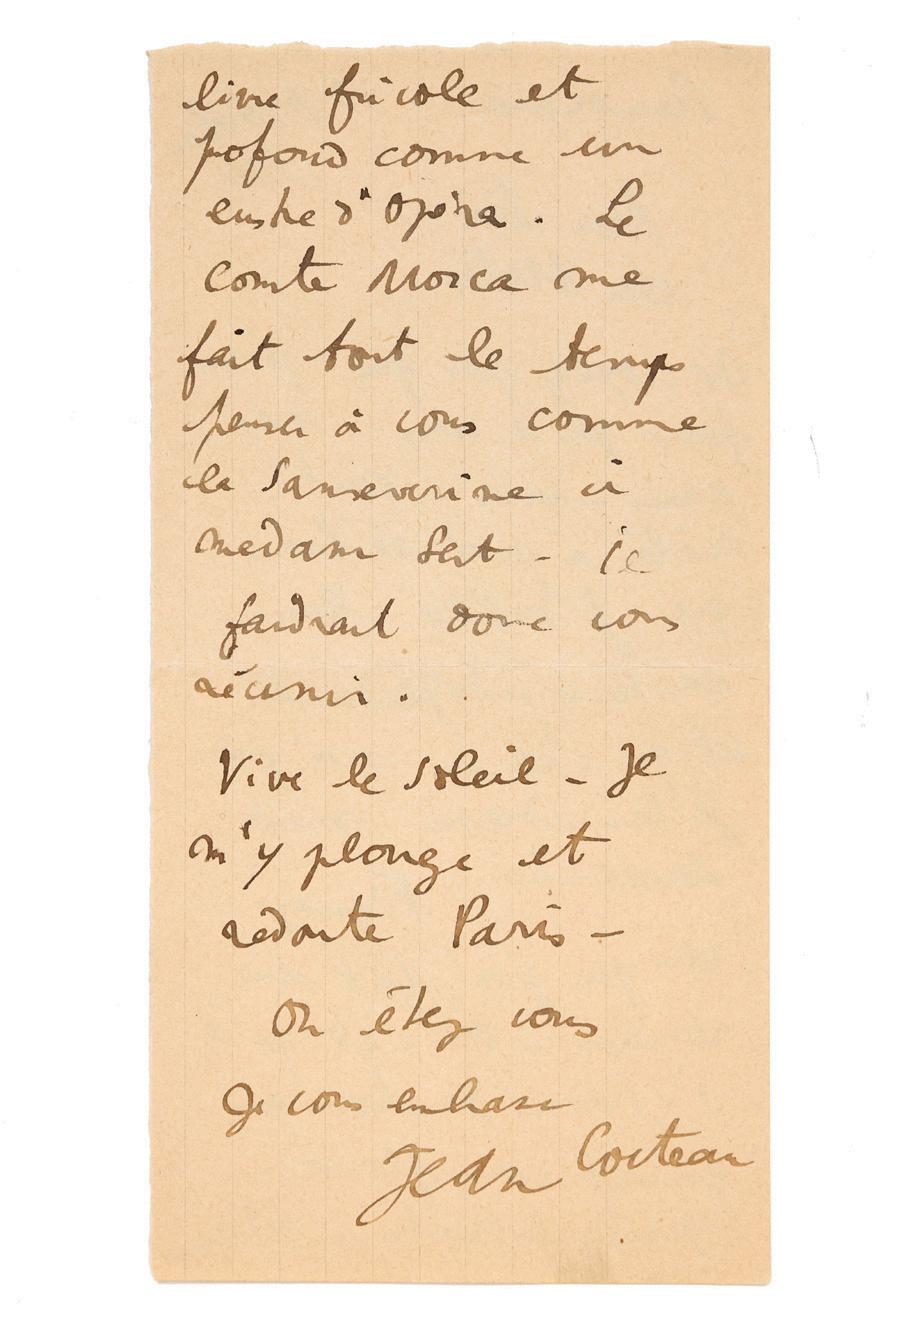 livre frivole et
profond comme un
lustre d'Opéra. Le
Comte Mosca me
fait tout le temps
penser à vous comme
la Sanseverine à
madame Sert - il
faudrait donc vous
réunir.
Vive le soleil - Je
m'y plonge et
redoute Paris -
Où êtes vous
Je vous embrasse
Jean Cocteau